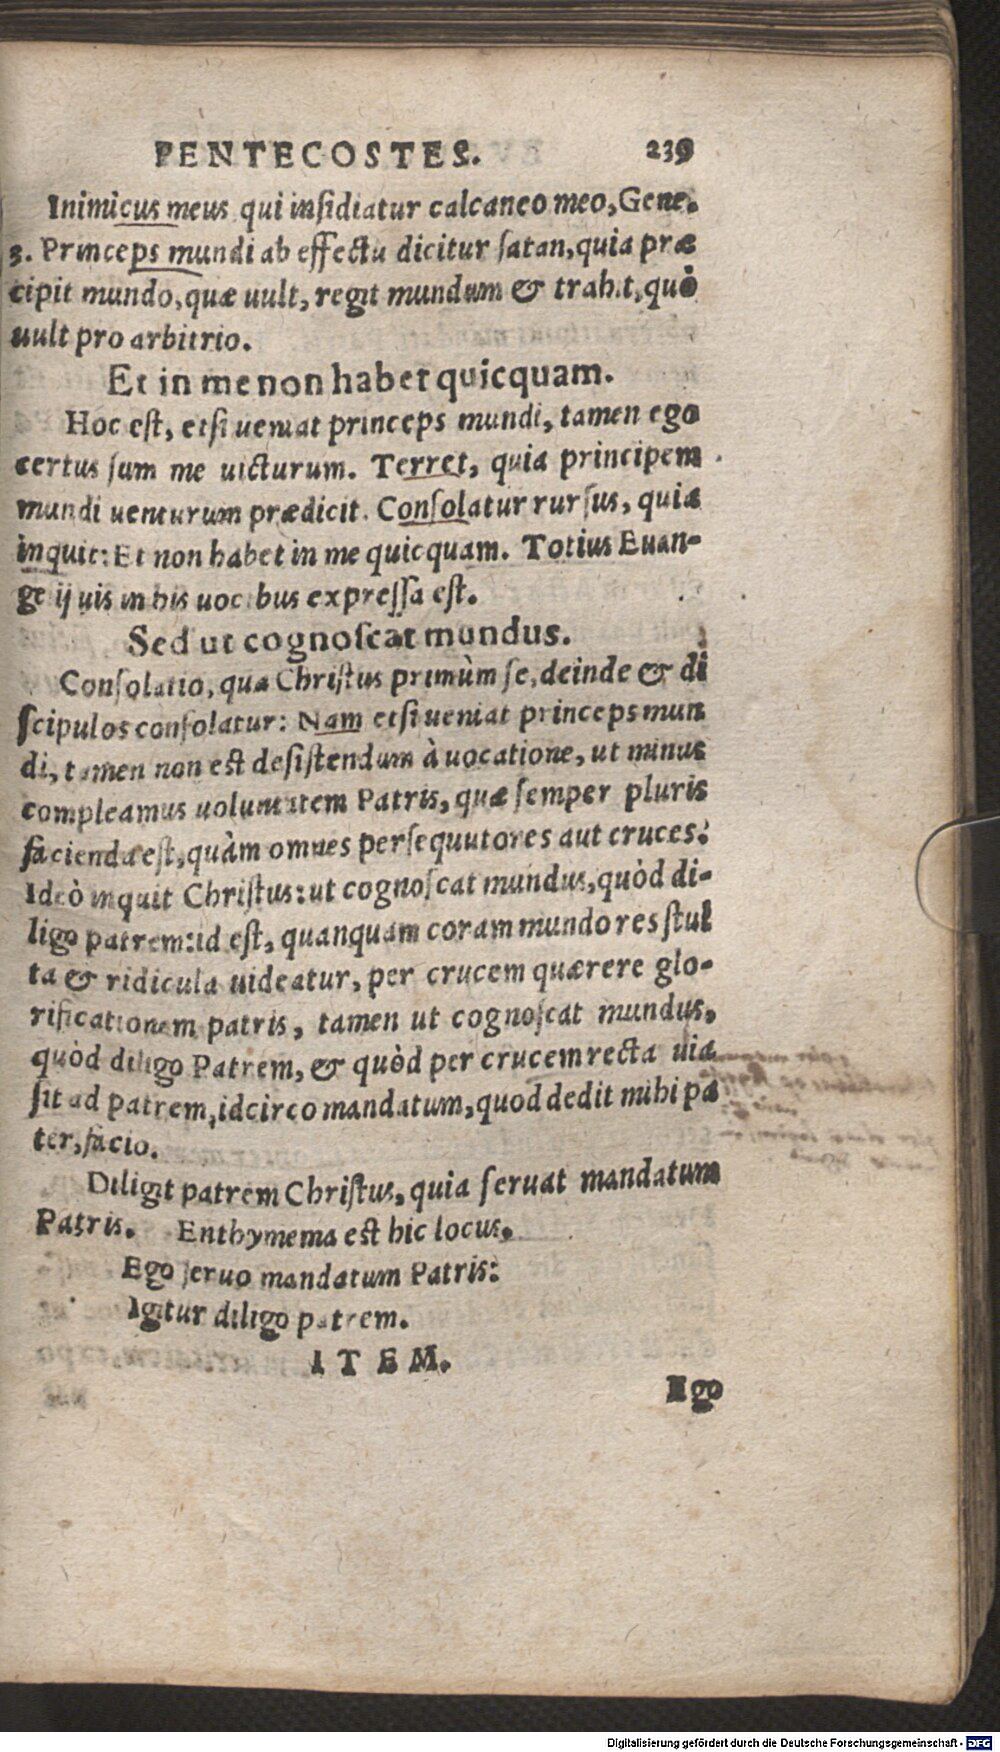 PENTECOSTES. 239
Inimicus meus qui inſidiatur calcaneo meo, Gene.
3. Princeps mundi ab effectu dicitur ſatan, quia præ
cipit mundo, quæ uult, regit mundum & trahit, quò
uult pro arbitrio.
Et in me non habet quicquam.
Hoc eſt, etſi ueniat princeps mundi, tamen ego
certus ſum me uicturum. Terret, quia principem
mundi uenturum prædicit. Conſolatur rurſus, quia
inquit: Et non habet in me quicquam. Totius Euan-
gelij uis in his uocibus expreſſa eſt.
Sed ut cognoſcat mundus.
Conſolatio, qua Chriſtus primùm ſe, deinde & di
ſcipulos conſolatur: Nam etſi ueniat princeps mun
di, tamen non eſt deſiſtendum à uocatione, ut minus
compleamus uoluntatem Patris, quæ ſemper pluris
facienda eſt, quàm omnes perſequutores aut cruces.
Ideò inquit Chriſtus: ut cognoſcat mundus, quòd di-
ligo patrem: id eſt, quanquam coram mundo res ſtul
ta & ridicula uideatur, per crucem quærere glo-
rificationem patris, tamen ut cognoſcat mundus,
quòd diligo Patrem, & quòd per crucem recta uia
ſit ad patrem, idcirco mandatum, quod dedit mihi pa
ter, facio.
Diligit patrem Chriſtus, quia ſeruat mandatum
Patris. Enthymema eſt hic locus.
Ego ſeruo mandatum Patris:
Igitur diligo patrem.
ITEM.
Ego
Digitalisierung gefördert durch die Deutsche Forschungsgemeinschaft - DFG